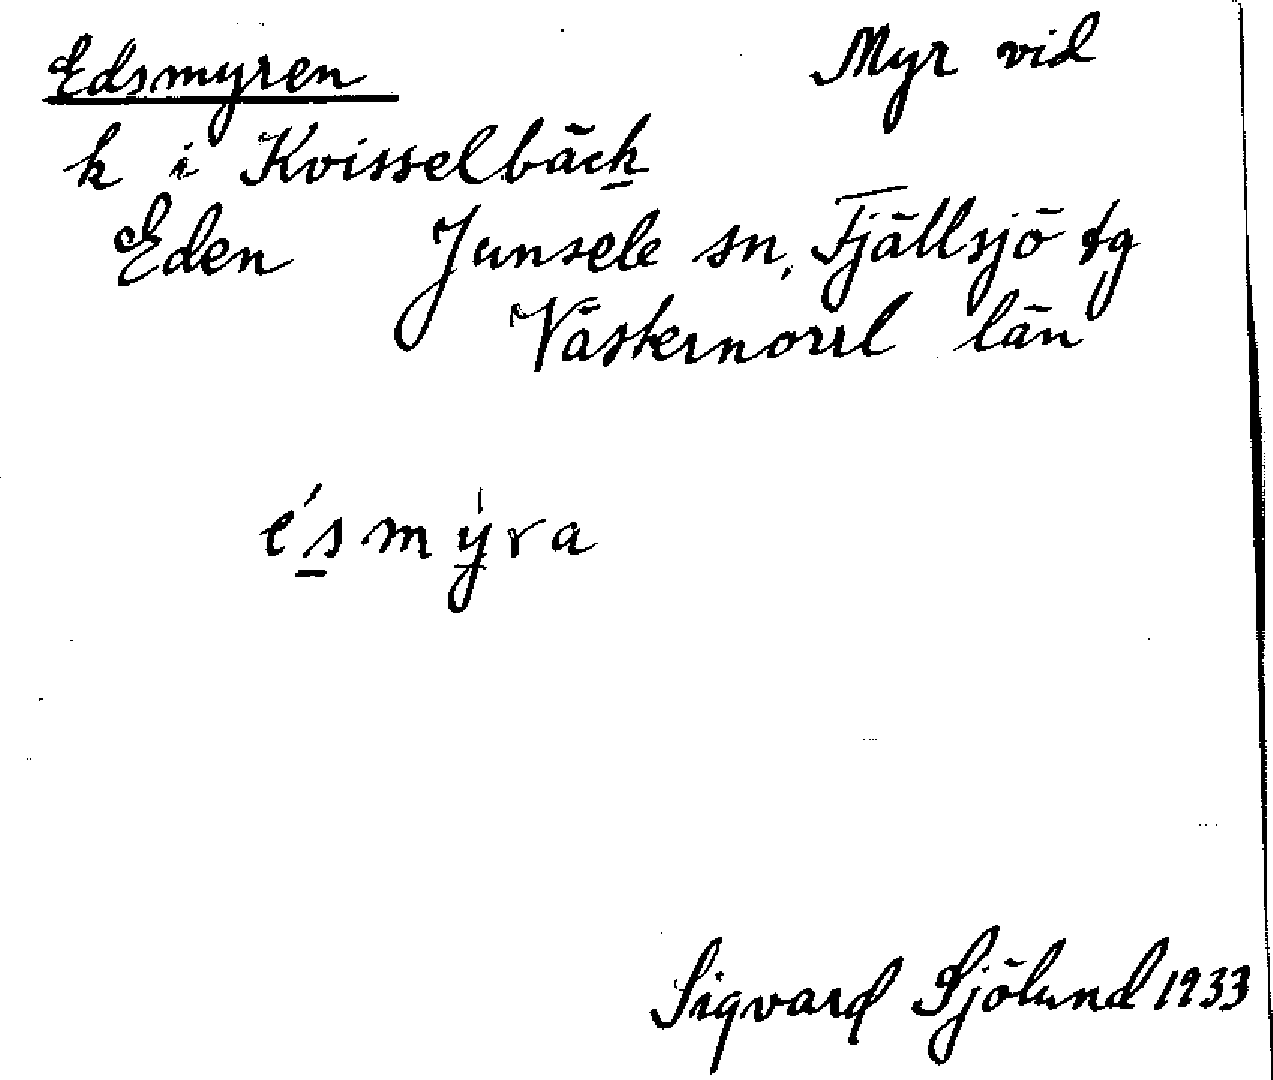 Edsmyren Myr vid
k i Kvisselbäck
Eden Junsele sn, Fjällsjö tg
Västernorrl län
é s m ý r a
Sigvard Sjölund 1933